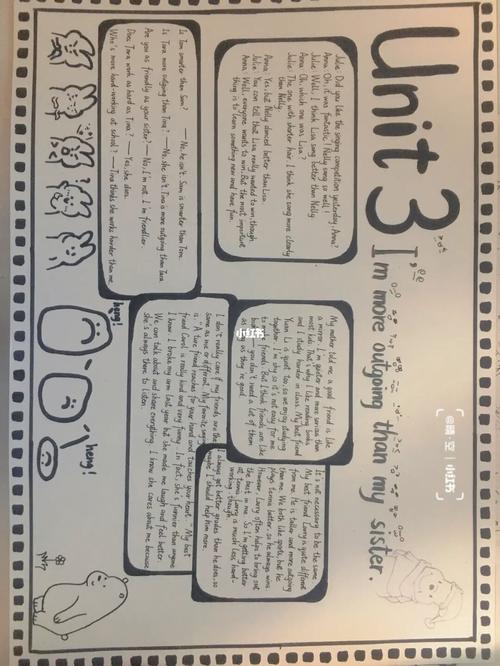 Unit 3
I'm more outgoing than my sister.
Julie: Did you like the singing competition yesterday, Anna?
Anna: Oh, it was fantastic! Nelly sang so well!
Julie: Well, I think Lisa sang better than Nelly.
Anna: Oh, which one was Lisa?
Julie: The one with shorter hair. I think she sang more clearly
than Nelly.
Anna: Yes, but Nelly danced better than Lisa.
Julie: You can tell that Lisa really wanted to win, though.
Anna: Well, everyone wants to win. But the most important
thing is to learn something new and have fun.
Is Tom smarter than Sam? — No, he isn't. Sam is smarter than Tom.
Is Tara more outgoing than Tina? — No, she isn't. Tina is more outgoing than Tara.
Are you as friendly as your sister? — No, I'm not. I'm friendlier.
Does Tara work as hard as Tina? — Yes, she does.
Who's more hard-working at school? — Tina thinks she works harder than me.
My mother told me a good friend is like
a mirror. I'm quieter and more serious than
most kids. That's why I like reading books
and I study harder in class. My best friend
Yuan Li is quiet too, so we enjoy studying
together. I'm shy so it's not easy for me
to make friends. But I think friends are like
books — you don't need a lot of them
as long as they're good.
It's not necessary to be the same.
My best friend Larry is quite different
from me. He is taller and more outgoing
than me. We both like sports, but he
plays tennis better, so he always wins.
However, Larry often helps to bring out
the best in me. So I'm getting better
at tennis. Larry is much less hard-
working, though.
I always get better grades than he does, so
maybe I should help him more.
I don't really care if my friends are the
same as me or different. My favorite saying
is, "A true friend reaches for your hand and touches your heart." My best
friend Carol is really kind and very funny. In fact, she's funnier than anyone
I know. I broke my arm last year but she made me laugh and feel better.
We can talk about and share everything. I know she cares about me because
she's always there to listen.
heng!
heng!
小红书
@晴空 | 小红书